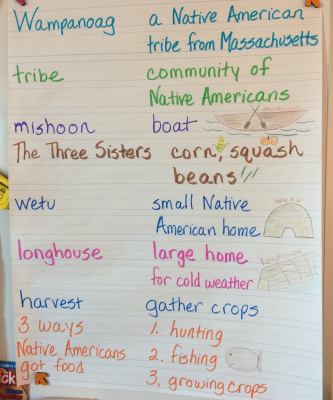 Wampanoag a Native American
tribe from Massachusetts
tribe community of
Native Americans
mishoon boat
mishoon
The Three Sisters corn, squash
beans
wetu small Native
American home
wetu
longhouse large home
for cold weather
longhouse
harvest gather crops
3 ways 1. hunting
Native Americans 2. fishing
got food 3. growing crops